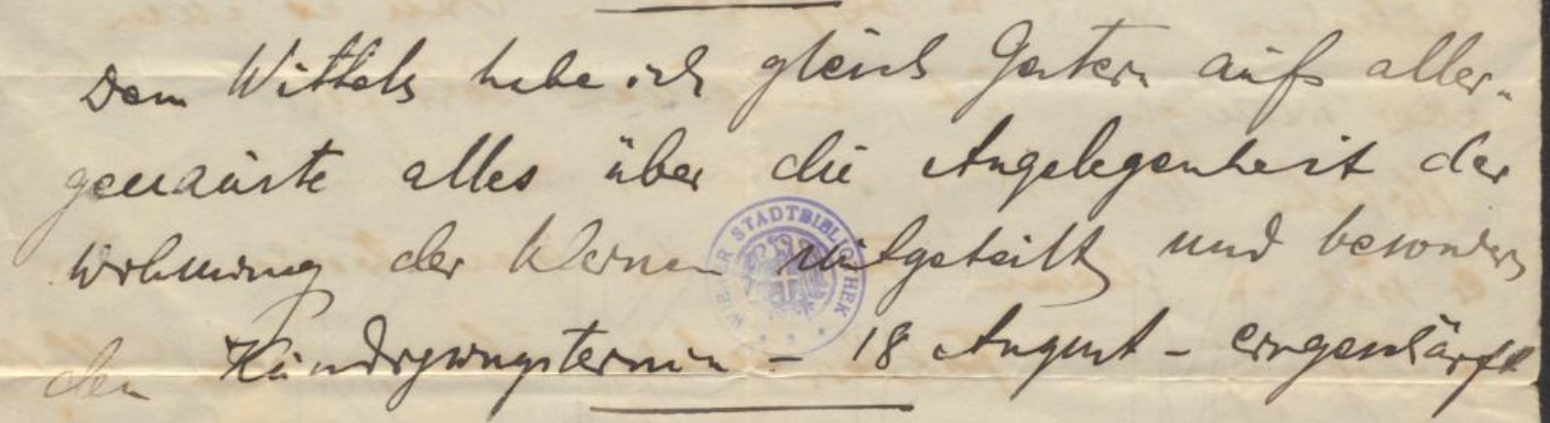 Dem Wittels habe ich gleich Gestern aufs aller-
genaueste alles über die Angelegenheit der
Wohnung der Kleinen mitgeteilt, und besonders
den Kündigungstermin – 18 August – eingeschärft
WIENER STADTBIBLIOTHEK